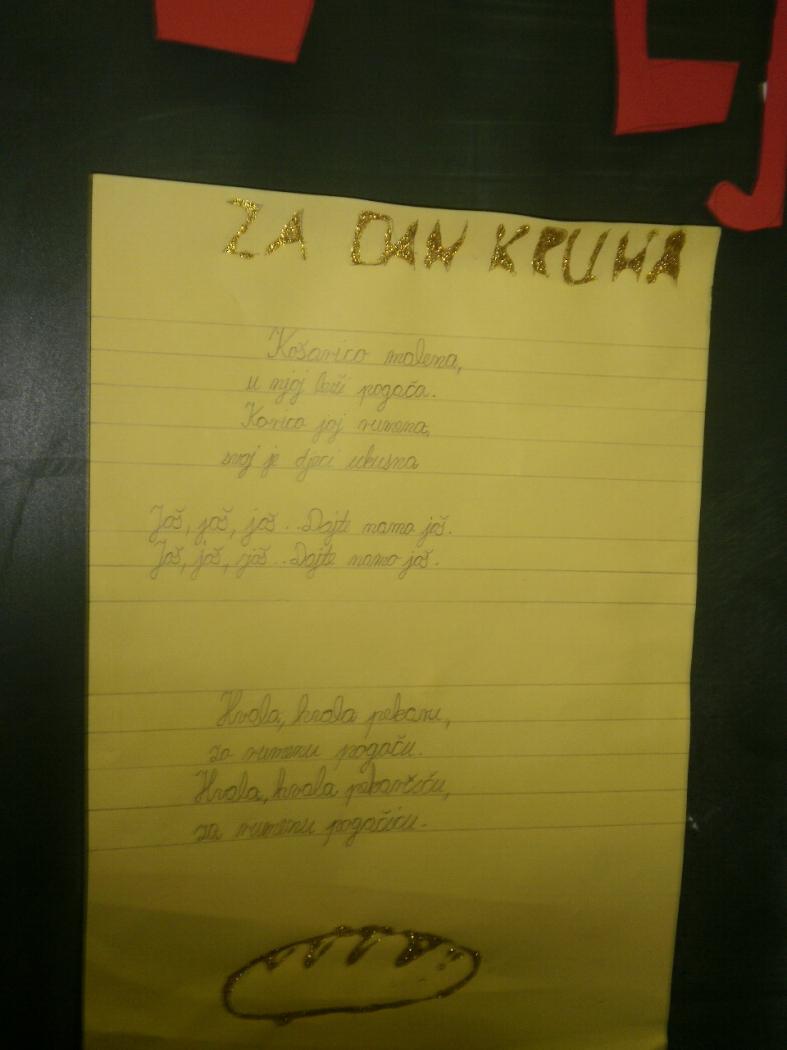 ZA DAN KRUHA
Košarica malena,
u njoj leži pogača.
Korica joj rumena,
svoj je djeci ukusna
Još, još, još...Dajte nama još.
Još, još, još...Dajte nama još.
Hvala, hvala pekaru,
za rumenu pogaču.
Hvala, hvala pekarčiću,
za rumenu pogačicu.